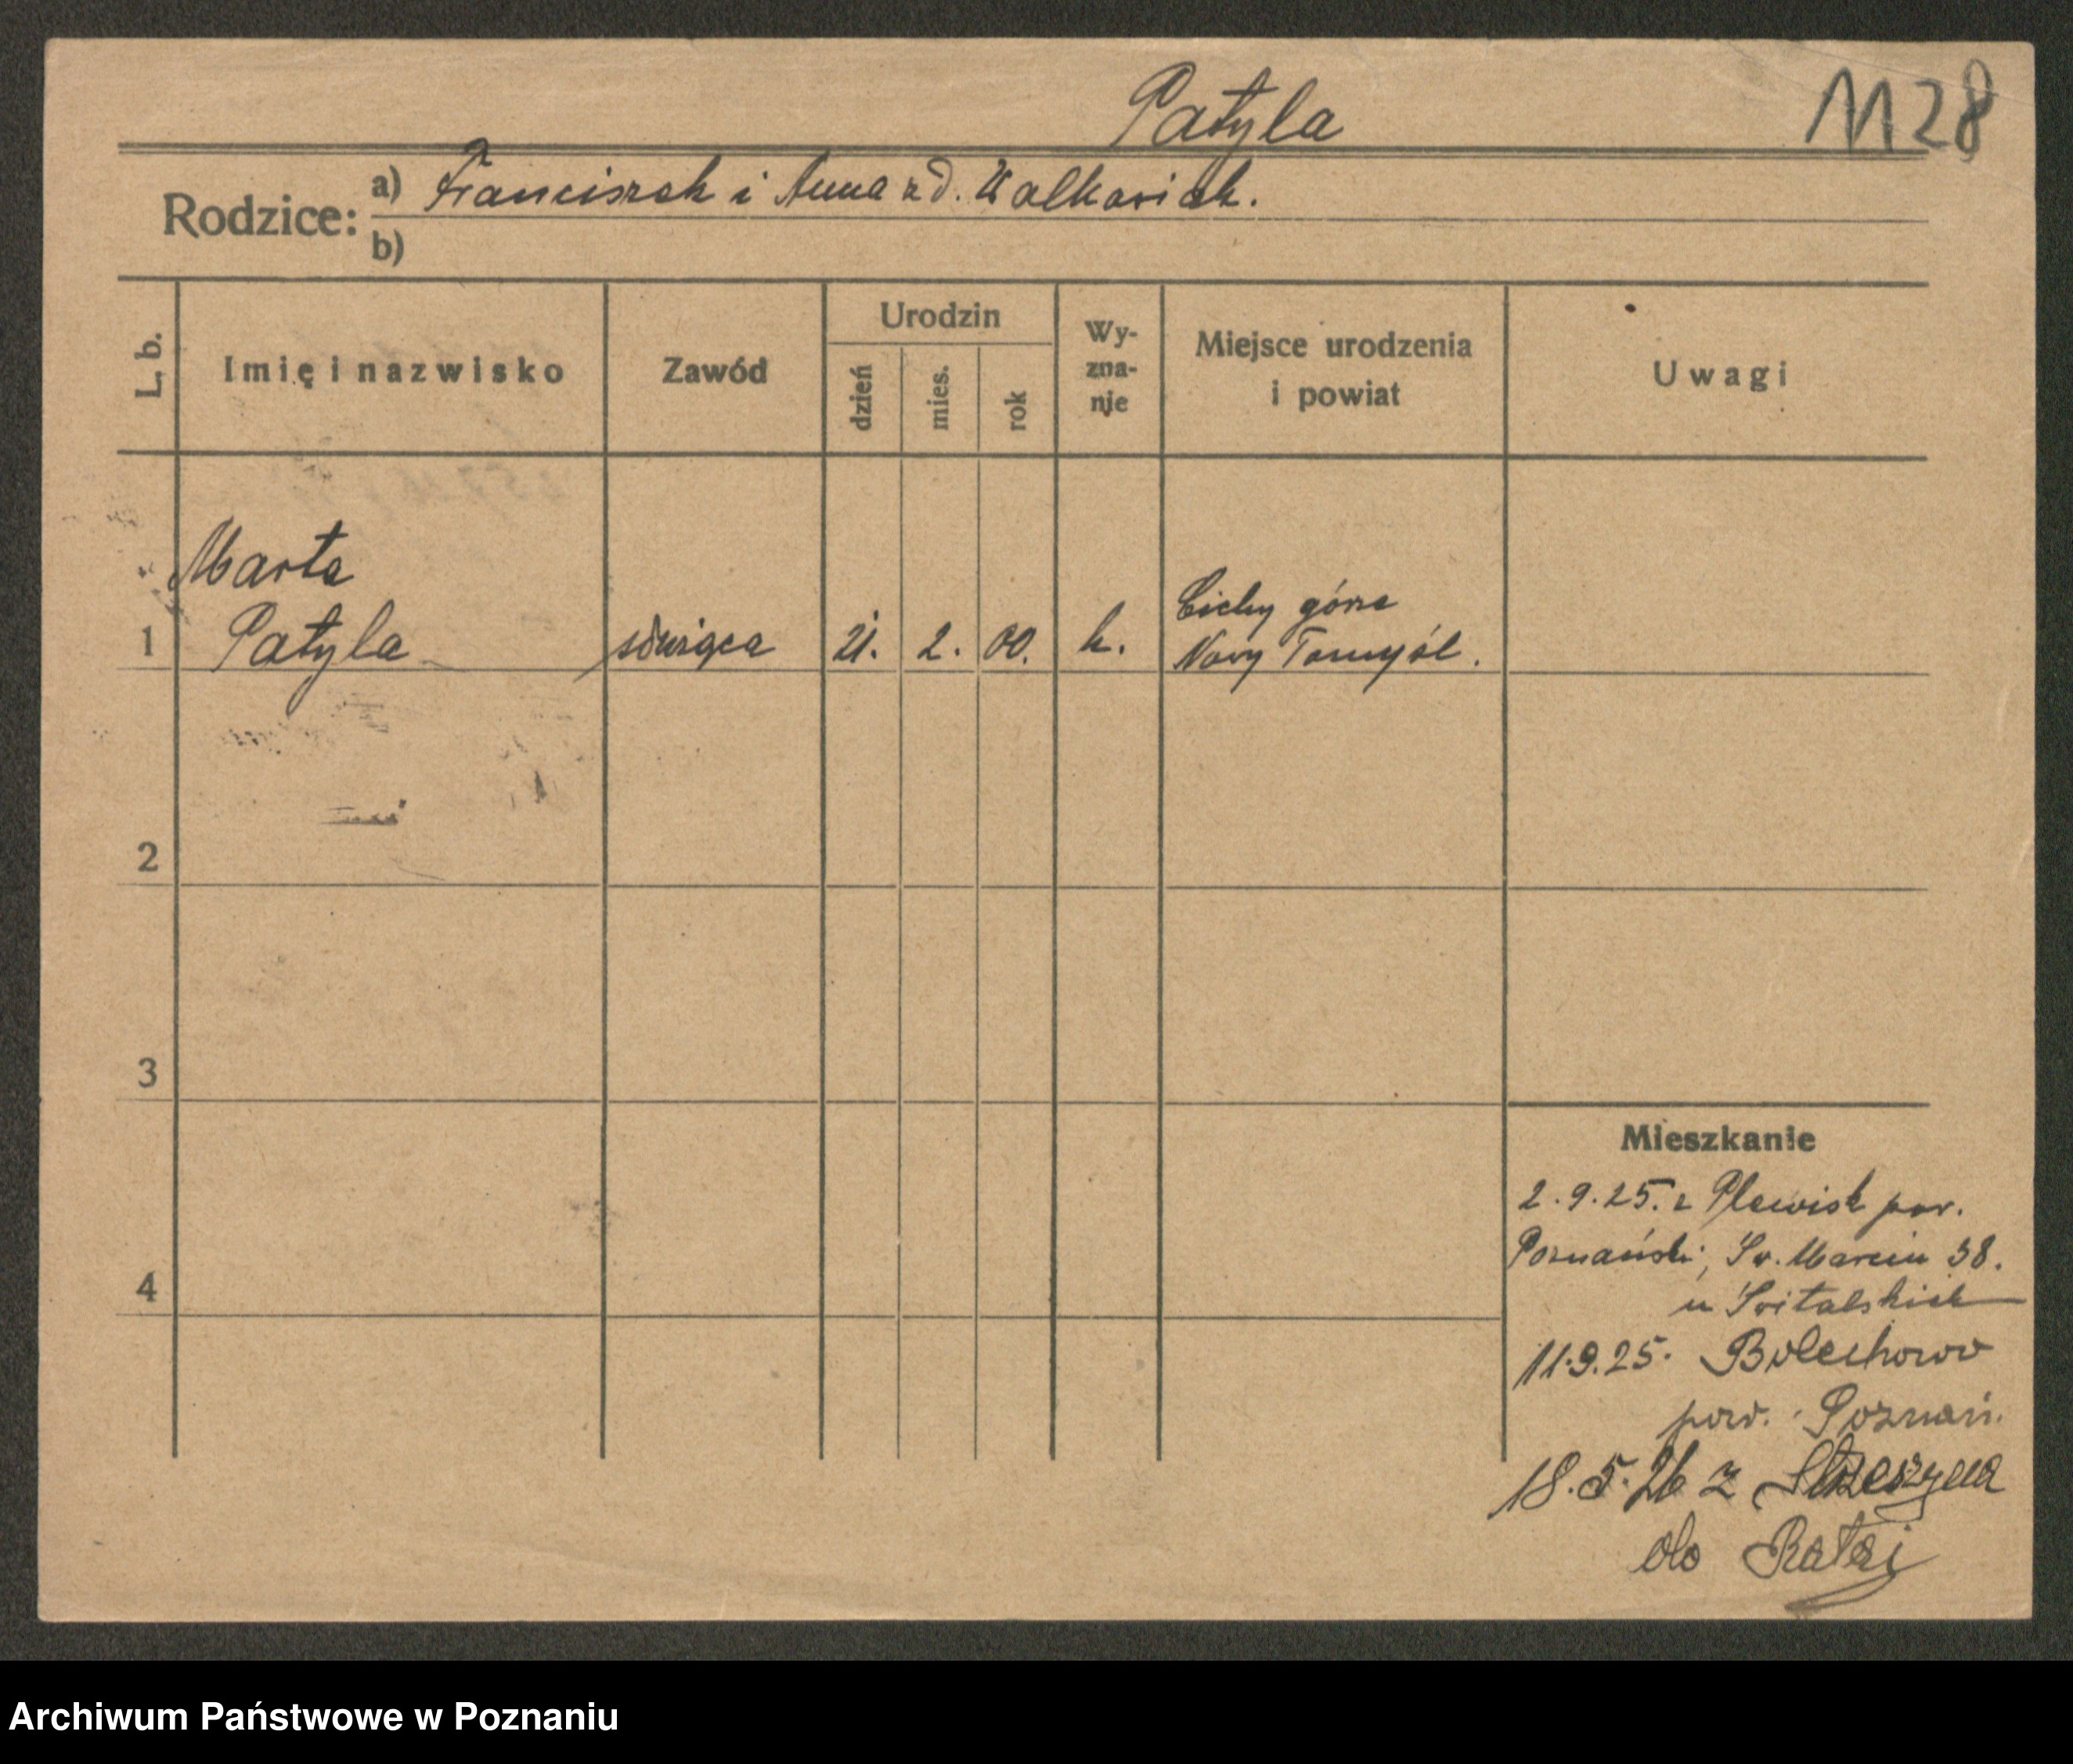 Patyla
1128
Rodzice: a) Franciszek i Anna zd. Walkowiak.
b)
L. b.
Imię i nazwisko
Zawód
Urodzin
dzień
mies.
rok
Wy-
zna-
nie
Miejsce urodzenia
i powiat
Uwagi
Marta
1 Patyla służąca 21. 2. 00. k. Cichy góra
Nowy Tomyśl.
2
3
4
Mieszkanie
2.9.25. z Plewisk pow.
Poznański, Św. Marcin 38.
u Świtalskich
11.9.25. Bolechowo
pow. Poznań.
18.5.26 z Strzeszyna
do Rataj
Archiwum Państwowe w Poznaniu